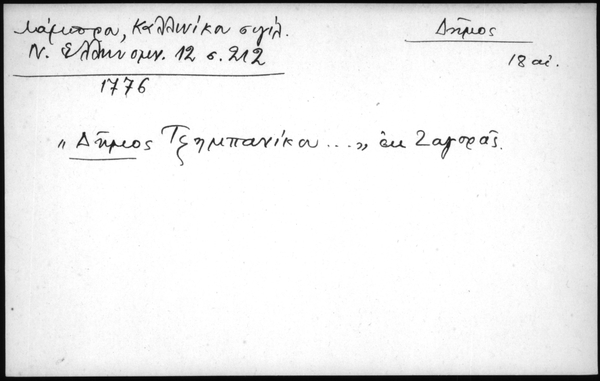 Λάμπρου, Καλλινίκου σιγίλ.
Ν. Ελληνομν. 12 σ. 212
1776
Δῆμος
18 αἰ.
„ Δῆμος Τζημπανίκου ... „ ἐκ Ζαγορᾶς.